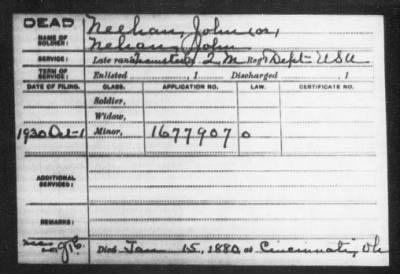 DEAD
NAME OF SOLDIER:
Neehan, John (or,
Nehan, John
SERVICE:
Late rank Teamster, 2 M Reg't Dept USA
TERM OF SERVICE:
Enlisted , 1 Discharged , 1
DATE OF FILING. CLASS. APPLICATION NO. LAW. CERTIFICATE NO.
Soldier,
Widow,
1930 Oct-1 Minor, 1677907 0
ADDITIONAL SERVICES:
REMARKS:
Died Jan 15, 1880 at Cincinnati, Oh